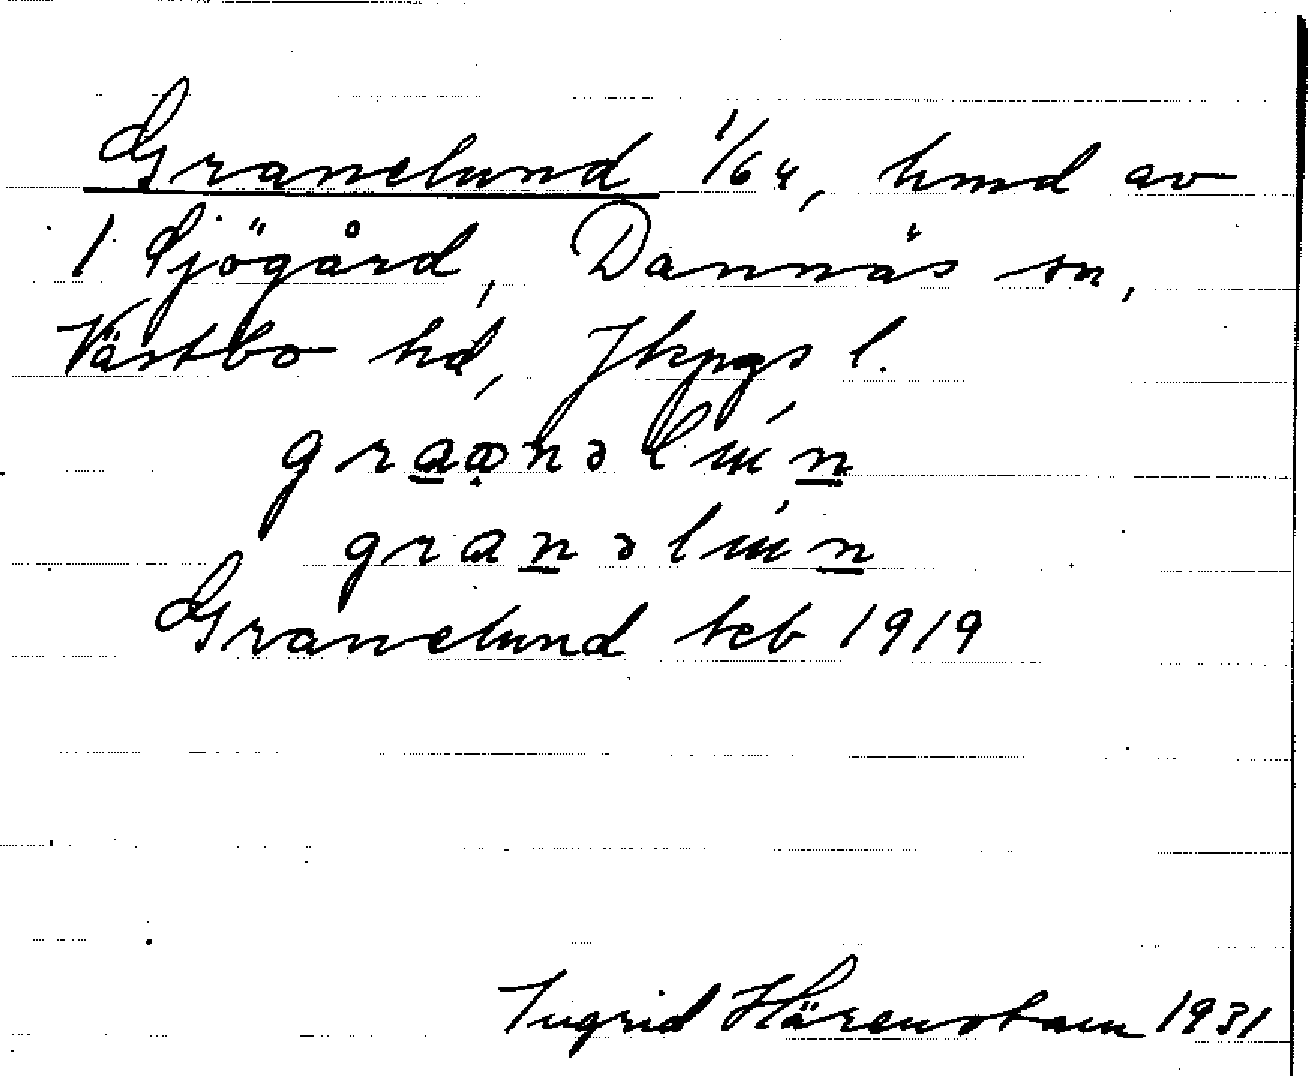 Granelund 1/64, hmd av
1 Sjögård, Dannäs sn,
Västbo hd, Jkpgs l.
Granelund teb 1919
Ingrid Härenstam 1931